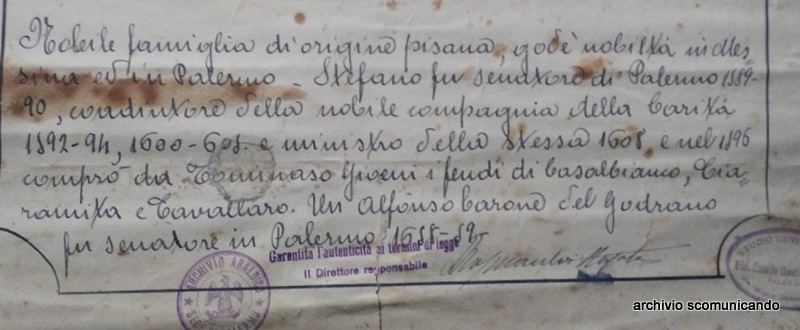 Nobile famiglia di origine pisana, godè nobiltà in Mes-
sina ed in Palermo - Stefano fu senatore di Palermo 1589-
90, coadiutore della nobile compagnia della Carità
1592-94, 1600-601. e ministro della stessa 1608, e nel 1596
comprò da Tommaso Gioeni i feudi di Casalbianco, Cia-
ramita e Cavallaro. Un Alfonso barone del Godrano
fu senatore in Palermo 1658-59-
Garantita l'autenticità ai termini di legge
Il Direttore responsabile
ARCHIVIO ARALDICO
STUDIO
archivio scomunicando